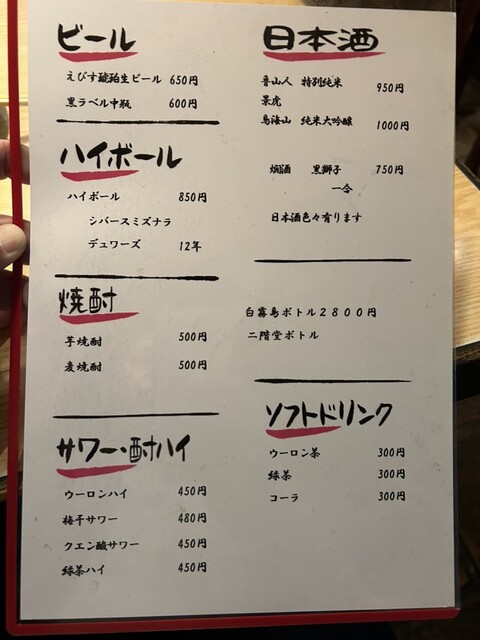 ビール
えびす琥珀生ビール 650円
黒ラベル中瓶 600円
ハイボール
ハイボール 850円
シバースミズナラ
デュワーズ 12年
焼酎
芋焼酎 500円
麦焼酎 500円
サワー・酎ハイ
ウーロンハイ 450円
梅干サワー 480円
クエン酸サワー 450円
緑茶ハイ 450円
日本酒
音山人 特別純米 950円
景虎
鳥海山 純米大吟醸 1000円
燗酒 黒獅子 750円
一合
日本酒色々有ります
白霧島ボトル2800円
二階堂ボトル
ソフトドリンク
ウーロン茶 300円
緑茶 300円
コーラ 300円